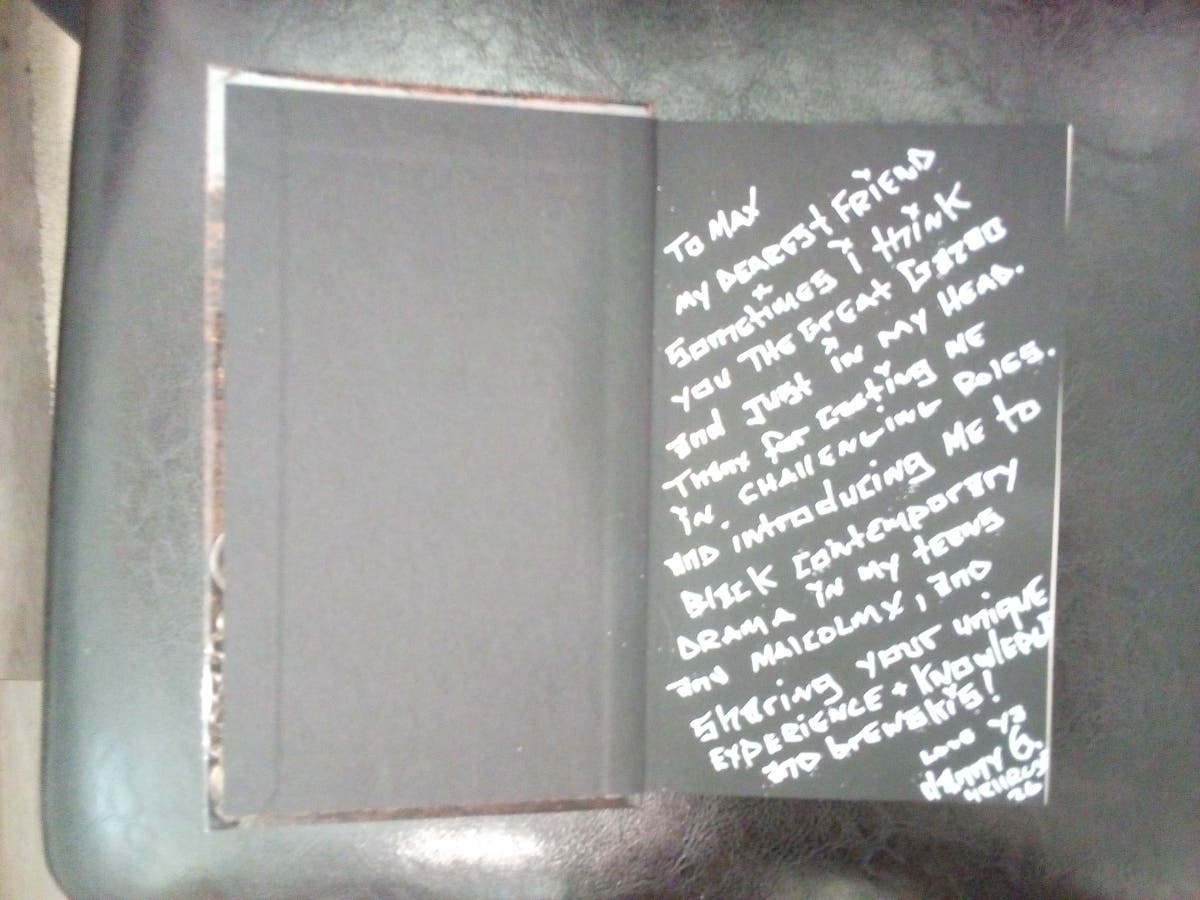 TO MAX
MY DEAREST FRIEND
SOMETIMES i think
YOU THE GREAT
and JUST IN MY HEAD.
THANX for casting ME
IN CHALLENGING ROLES.
AND introducing ME to
BLACK CONTEMPORARY
DRAMA IN MY teens
and MALCOLMX, AND
Sharing your unique
EXPERIENCE + KNOWLEDGE
AND brewskis!
LOVE YA
G.